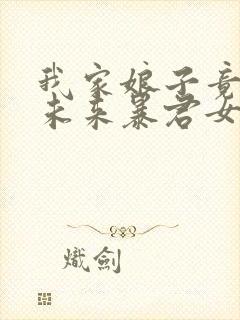 我家娘子竟
未来暴君女
熾劍